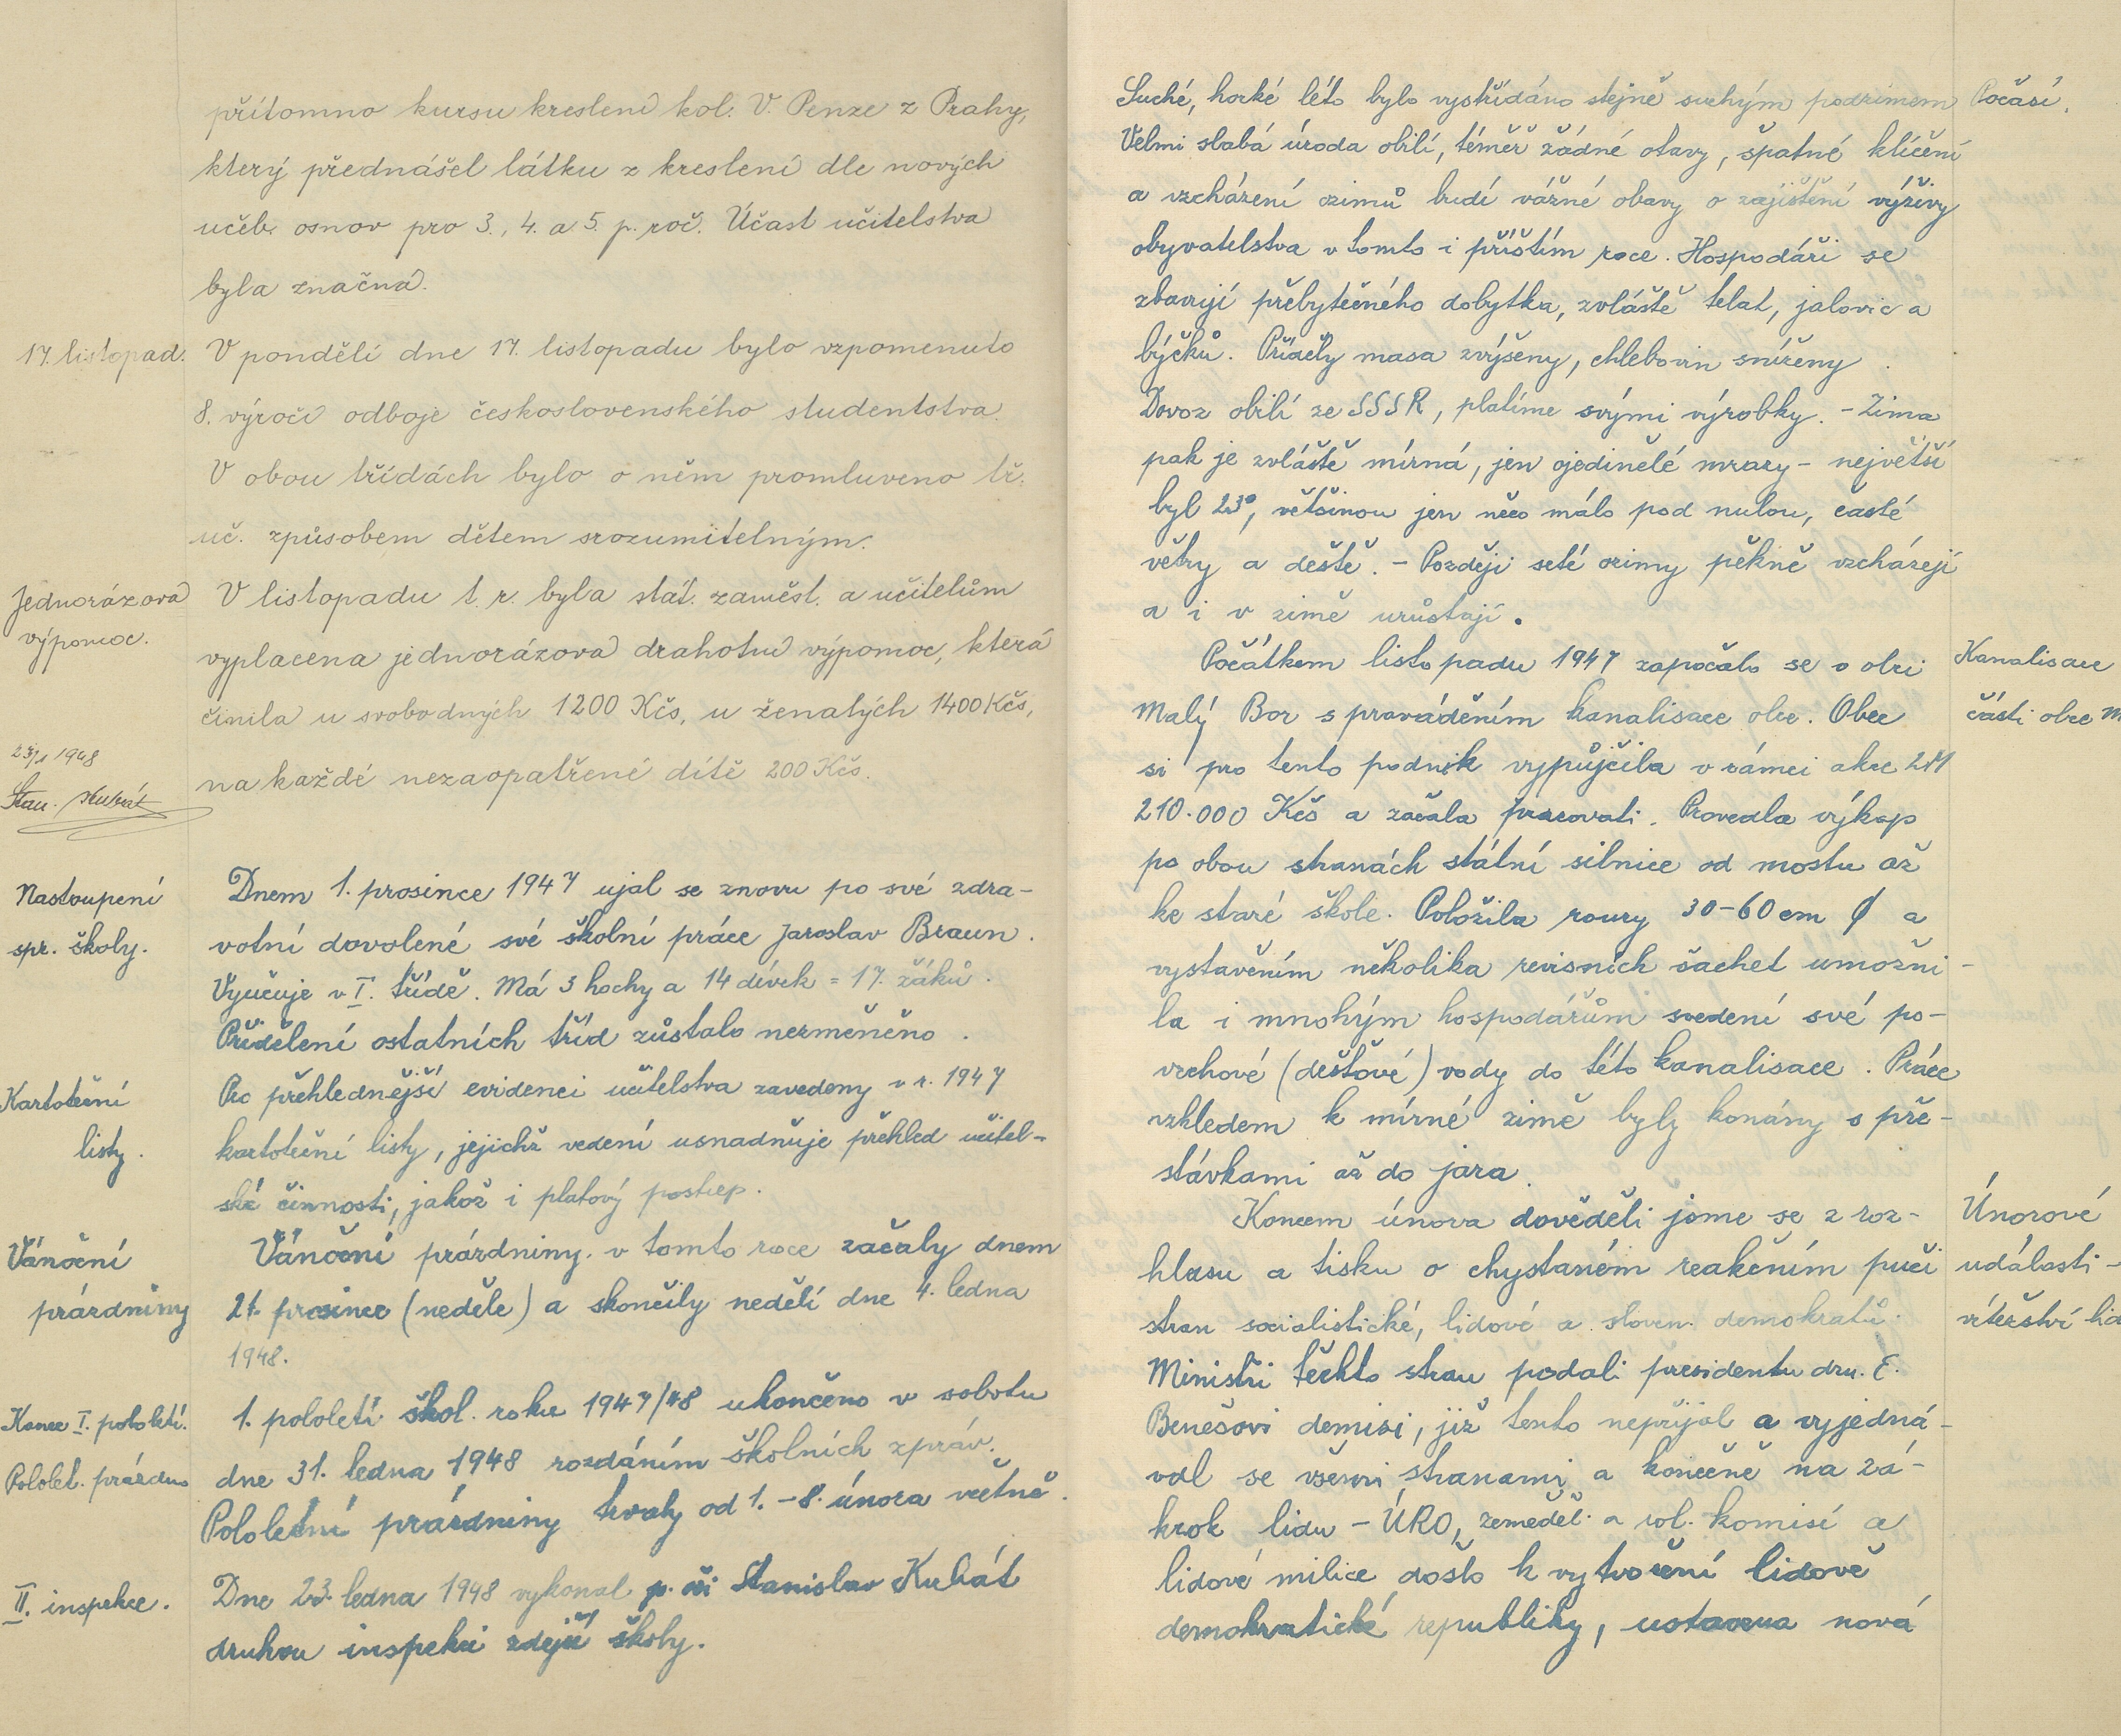 přítomno kursu kreslení kol. V. Penze z Prahy,
který přednášel látku z kreslení dle nových
učeb. osnov pro 3., 4. a 5. p. roč. Účast učitelstva
byla značná.
17. listopad.
V pondělí dne 17. listopadu bylo vzpomenuto
8. výročí odboje československého studentstva.
V obou třídách bylo o něm promluveno tř.
uč. způsobem dětem srozumitelným.
Jednorázová
výpomoc.
V listopadu t. r. byla stát. zaměst. a učitelům
vyplacena jednorázová drahotní výpomoc, která
činila u svobodných 1200 Kčs, u ženatých 1400 Kčs,
na každé nezaopatřené dítě 200 Kčs.
23/1 1948
Stan. Kubát
Nastoupení
spr. školy.
Dnem 1. prosince 1947 ujal se znovu po své zdra-
votní dovolené své školní práce Jaroslav Braun.
Vyučuje v I. třídě. Má 3 hochy a 14 dívek = 17. žáků.
Přidělení ostatních tříd zůstalo nezměněno.
Kartoteční
listy.
Pro přehlednější evidenci učitelstva zavedeny v r. 1947
kartoteční listy, jejichž vedení usnadňuje přehled učitel-
ské činnosti, jakož i platový postup.
Vánoční
prázdniny
Vánoční prázdniny v tomto roce začaly dnem
21. prosince (neděle) a skončily nedělí dne 4. ledna
1948.
Konec I. pololetí.
Pololet. prázdn.
1. pololetí škol. roku 1947/48 ukončeno v sobotu
dne 31. ledna 1948 rozdáním školních zpráv.
Pololetní prázdniny trvaly od 1. - 8. února včetně.
II. inspekce.
Dne 23. ledna 1948 vykonal p. oši Stanislav Kubát
druhou inspekci zdejší školy.
Suché, horké léto bylo vystřídáno stejně suchým podzimem
Počasí.
Velmi slabá úroda obilí, téměř žádné otavy, špatné klíčení
a vzcházení ozimů budí vážné obavy o zajištění výživy
obyvatelstva v tomto i příštím roce. Hospodáři se
zbavují přebytečného dobytka, zvláště telat, jalovic a
býčků. Příděly masa zvýšeny, chlebovin sníženy.
Dovoz obilí ze SSSR, platíme svými výrobky. - Zima
pak je zvláště mírná, jen ojedinělé mrazy - největší
byl 23°, většinou jen něco málo pod nulou, časté
větry a deště. - Později seté ozimy pěkně vzcházejí
a i v zimě urůstají.
Počátkem listopadu 1947 započalo se v obci
Kanalisace
Malý Bor s prováděním kanalisace obce. Obec
části obce M
si pro tento podnik vypůjčila v rámci akce 2M
210.000 Kčs a začala pracovati. Provedla výkop
po obou stranách státní silnice od mostu až
ke staré škole. Položila roury 30-60 cm ∅ a
vystavěním několika revisních šachet umožni-
la i mnohým hospodářům svedení své po-
vrchové (dešťové) vody do této kanalisace. Práce
vzhledem k mírné zimě byly konány s pře-
stávkami až do jara.
Koncem února dověděli jsme se z roz-
Únorové
hlasu a tisku o chystaném reakčním puči
události -
stran socialistické, lidové a sloven. demokratů.
vítězství lid
Ministři těchto stran podali presidentu dru. E.
Benešovi demisi, již tento nepřijal a vyjedná-
val se všemi stranami a konečně na zá-
krok lidu - ÚRO, zeměděl. a rol. komisí a
lidové milice došlo k vytvoření lidově
demokratické republiky, ustavena nová